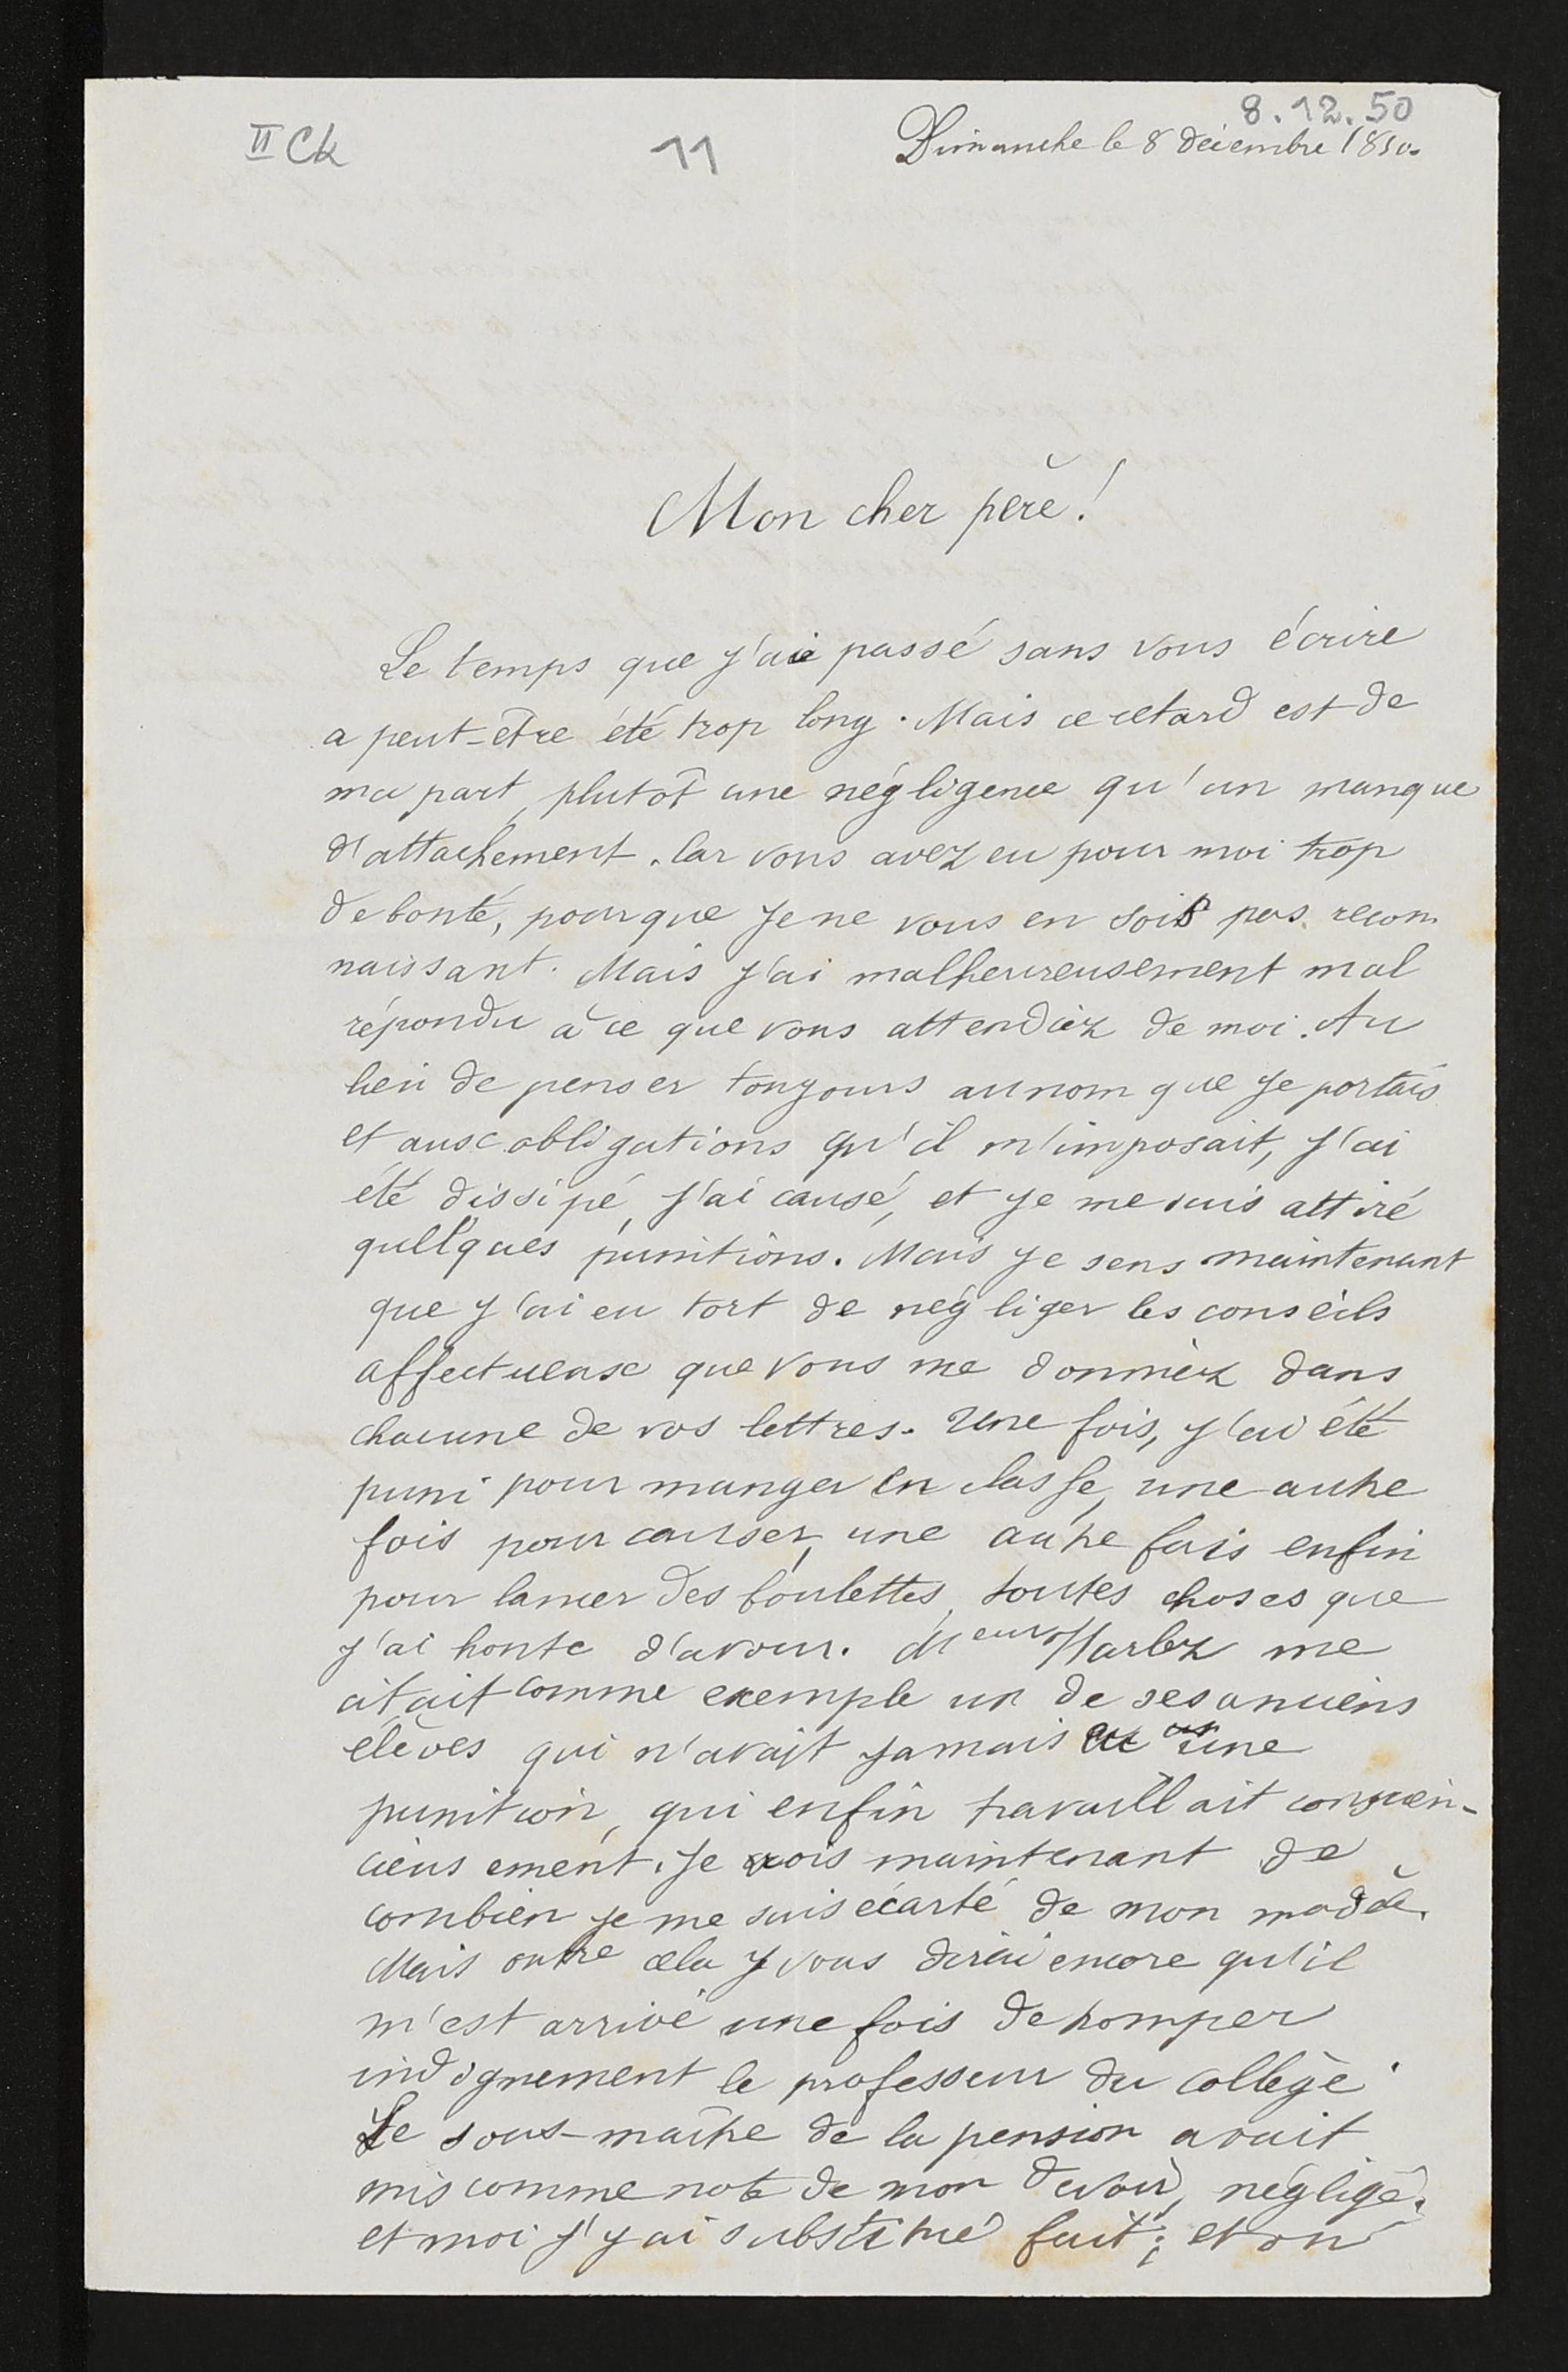 8.12.50
II Ck
11
Dimanche le 8 décembre 1850.
Mon cher père!
Le temps que j'ai passé sans vous écrire
a peut-être été trop long. Mais ce retard est de
ma part, plutôt une négligence qu'un manque
d'attachement. Car vous avez eu pour moi trop
de bonté, pour que je ne vous en sois pas recon
naissant. Mais j'ai malheureusement mal
répondu à ce que vous attendiez de moi. Au
lieu de penser toujours au nom que je portais
et aux obligations qu'il m'imposait, j'ai
été dissipé, j'ai causé, et je me suis attiré
quelques punitions. Mais je sens maintenant
que j'ai eu tort de négliger les conseils
affectueux que vous me donniez dans
chacune de vos lettres. Une fois, j'ai été
puni pour manger en classe, une autre
fois pour causer, une autre fois enfin
pour lancer des boulettes, toutes choses que
j'ai honte d'avouer. Meur Harlez me
citait comme exemple un de ses anciens
élèves qui n'avait jamais eu une
punition, qui enfin travaillait conscien-
cieusement. Je vois maintenant de
combien je me suis écarté de mon modèle.
Mais outre cela j vous dirai encore qu'il
m'est arrivé une fois de tromper
indignement le professeur du collège.
Le sous-maître de la pension avait
mis comme note de mon devoir, négligé,
et moi j'y ai substitué fait; et on